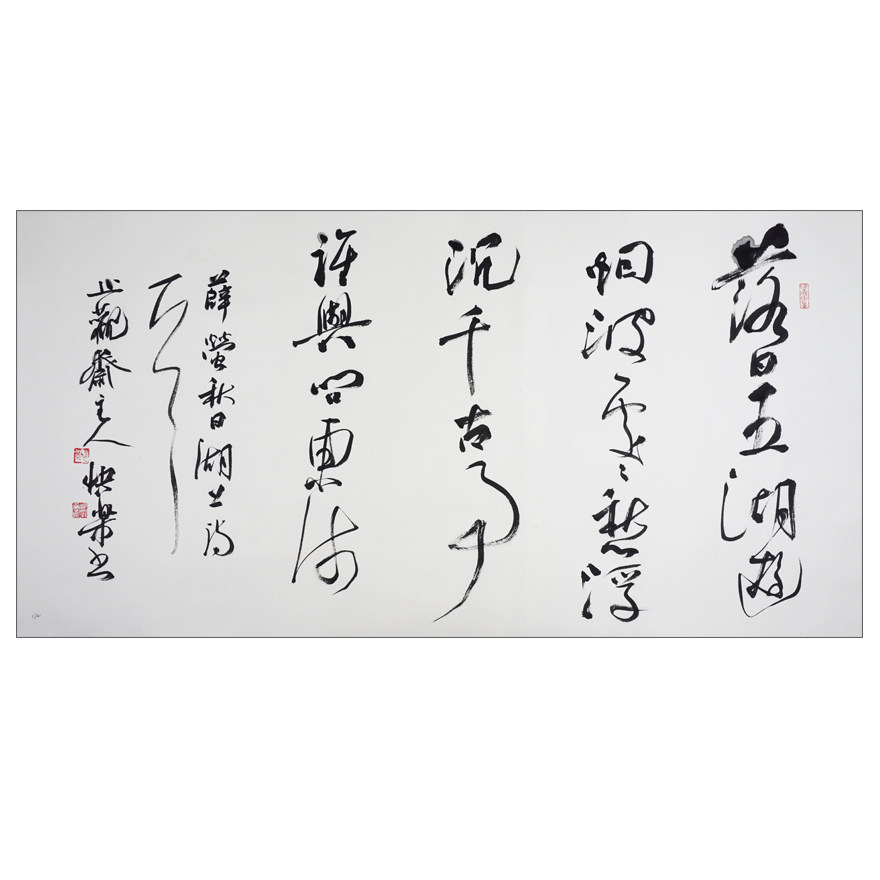 落日五湖遊
烟波處々愁浮
沉千古事
誰與問東流
薛螢秋日湖上詩
止觀齋主人快樂書